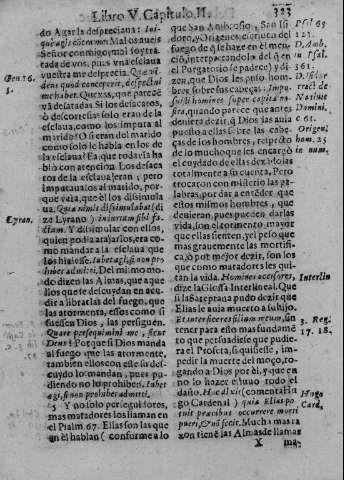 Libro V. Capitulo II.
323
do Agar la despreciaua: Ini-
què agis contra me: Mal os aueis
Señor conmigo, mal soy tra-
tada de vos, pues vna esclaua
vuestra me desprecia. Quæ vi-
dens quòd conceperit, despectui
me habet. Quexas, que parecē
và desatadas Si los desacatos,
ò descortesias solo eran de la
esclaua, como los imputa al
marido? O si eran del marido
como solo le habla en los de
la esclaua? Ea, que todavia ha-
blò con atencion. Los desaca-
tos de la esclaua eran; pero
imputaualos al marido, por-
que vaia, que èl los dissimula
ua. Quia nimis dissimulabat (di
ze Lyrano) iniuriam sibi fa-
ctam. Y dissimular con ellos,
quien podia atajarlos, era co-
mo mandar a la esclaua que
los hiziesse. Iubet agi, si non pro
hibet admitti. Del mismo mo-
do dizen las Almas, que a que
llos que se descuydan en acu-
dir a librarlas del fuego, que
las atormenta, essos como si
fuessen Dios, las persiguen.
Quare persequimini me, sicut
Deus? Porque si Dios manda
al fuego que las atormente,
tambien ellos con este su des-
cuydo lo mandan, pues pu-
diendo no lo prohiben. Iubet
agi, si non prohibet admitti.
5 Y no solo perseguidores,
mas matadores los llaman en
el Psalm. 67. Ellas son las que
en èl hablan (conforme a lo
Gen. 16.
5.
Lyran.
que San Ambrosio, San Isi
doro, y Origenes dizen) q̃ del
fuego de q̃ se haze en èl men-
ciò, interpretandolo del q̃ en
el Purgatorio se padece) di-
zen, que Dios les puso hom-
bres sobre sus cabeças: Impo-
suisti homines super capita no-
stra, quando parece que antes
deuiera dezir, q̃ Dios las auia
puesto a ellas sobre las cabe-
ças de los hombres, respecto
de lo mucho que les encargò
el cuydado de ellas dexandolas
totalmente a su cuenta. Pero
trocaron con misterio las pa-
labras, por dar a entēder, que
ellos mismos hombres, que
deuieran, pues pueden dar las
vida, son el tormento mayor
que ellas sienten, y el peso que
mas grauemente las mortifi-
ca, ò por mejor dezir, son los
que como matadores les qui-
tan la vida. Homines acceferes,
dize la Glossa Interlineal. Que
si la Sareptana pudo dezir que
Elias le auia muerto a su hijo.
Et interficeres filium meum, sin
tener para esto mas fundamē
to que persuadirse que pudie-
ra el Profeta, si quisiesse, im-
pedir la muerte del moço, ro-
gando a Dios por èl, y que en
no lo hazer estuuo todo el
daño. Hæc dixit (comenta Hu
go Cardenal) quia Elias po-
tuit precibus occurrere morti
pueri, & non fecit. Mucha mas ra
zon tiene las Almas de llamar
X
ma-
Psal. 65
121.
D. Amb.
in Psal.
361.
D. Isidor
tract. de
Natiuit
Domini.
c. 61.
Origen;
hom. 25
in num.
Interlin
3. Reg.
17. 18.
Hugo
Card.